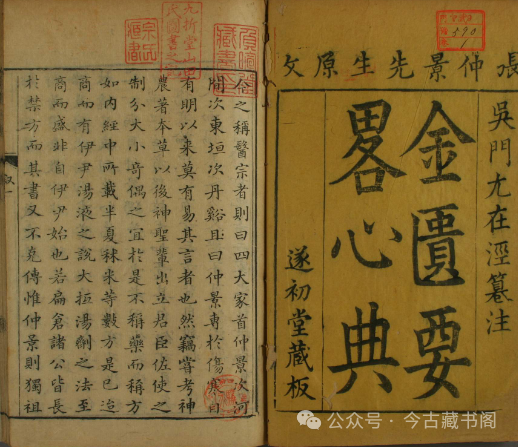 張仲景先生原文
吳門尤在涇纂注
金匱要
畧心典
遂初堂藏板
590
今之稱醫宗者則曰四大家首仲景次河
間次東垣次丹谿且曰仲景專於傷寒自
有明以來莫有易其言者也然竊嘗考神
農著本草以後神聖輩出立君臣佐使之
制分大小奇偶之宜於是不稱藥而稱方
如内經中所載半夏秫米等數方是已迨
商而有伊尹湯液之說大抵湯劑之法至
商而盛非自伊尹始也若扁倉諸公皆長
於禁方而其書又不克傳惟仲景則獨祖
公众号 · 今古藏书阁